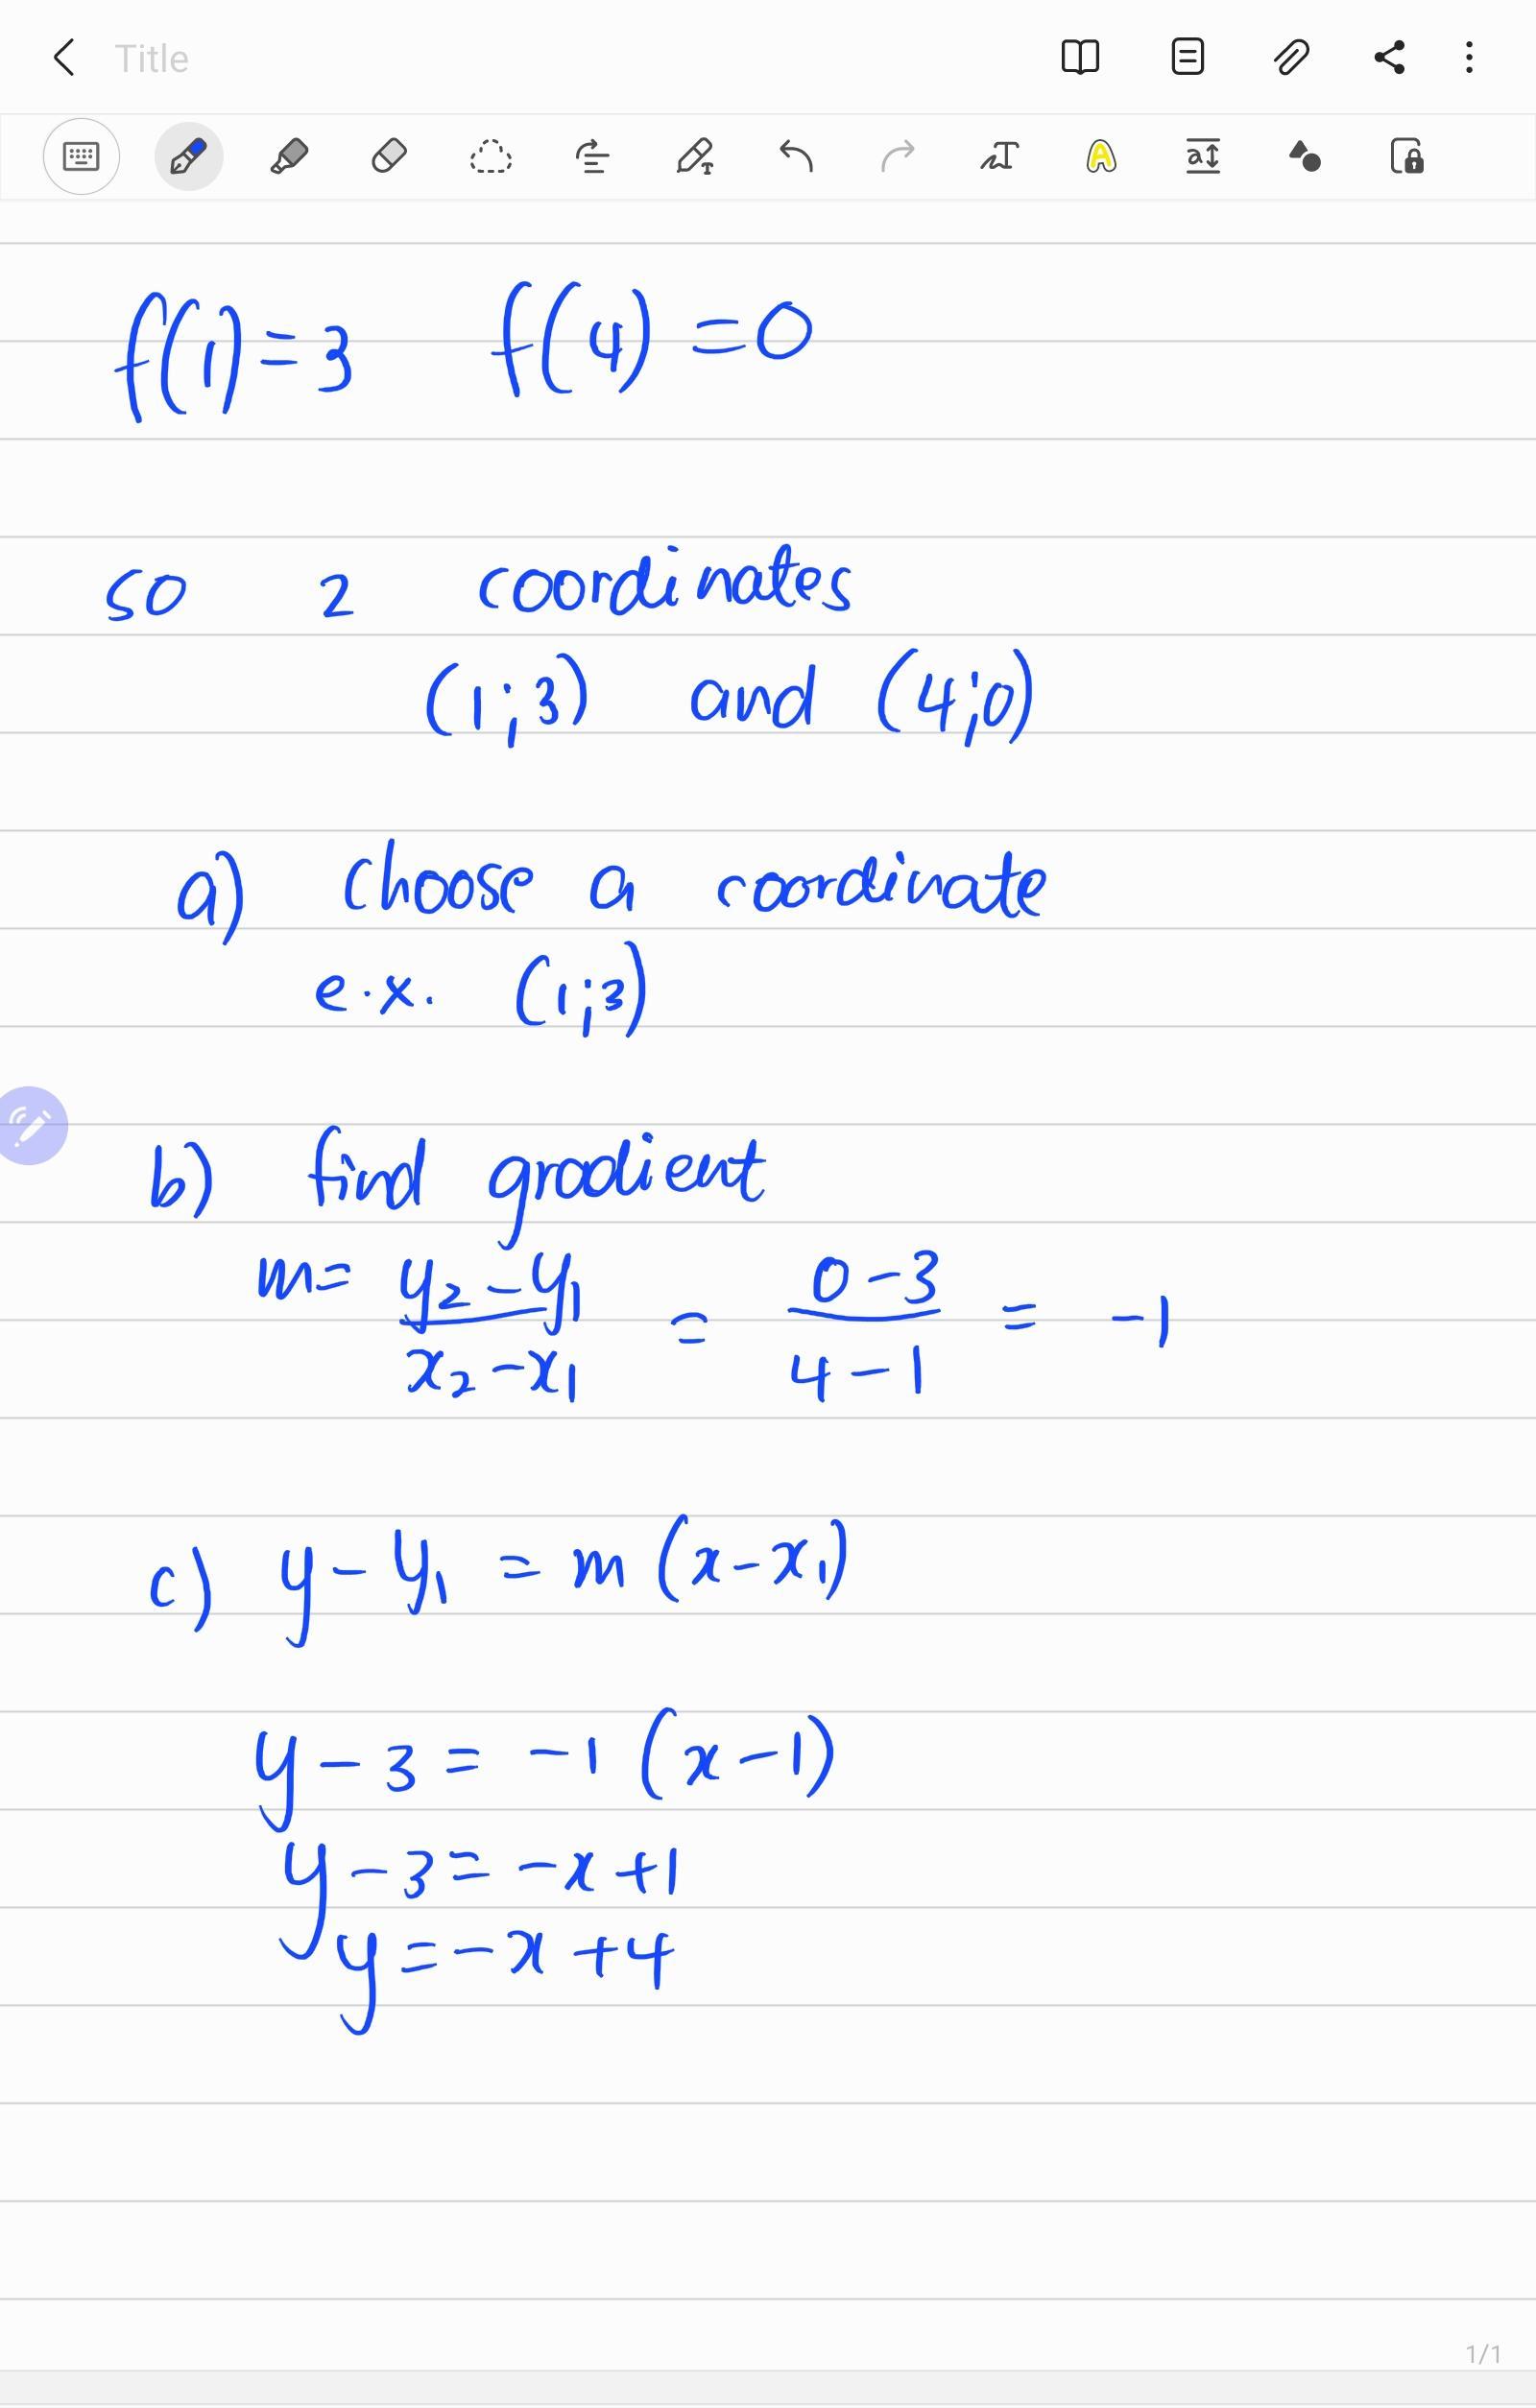 Title
f(1)=3 f(4)=0
so 2 coordinates
(1;3) and (4;0)
a) choose a coordinate
e.x. (1;3)
b) find gradient
m = y₂-y₁ / x₂-x₁ = 0-3 / 4-1 = -1
c) y-y₁ = m(x-x₁)
y-3 = -1(x-1)
y-3=-x+1
y=-x+4
1/1